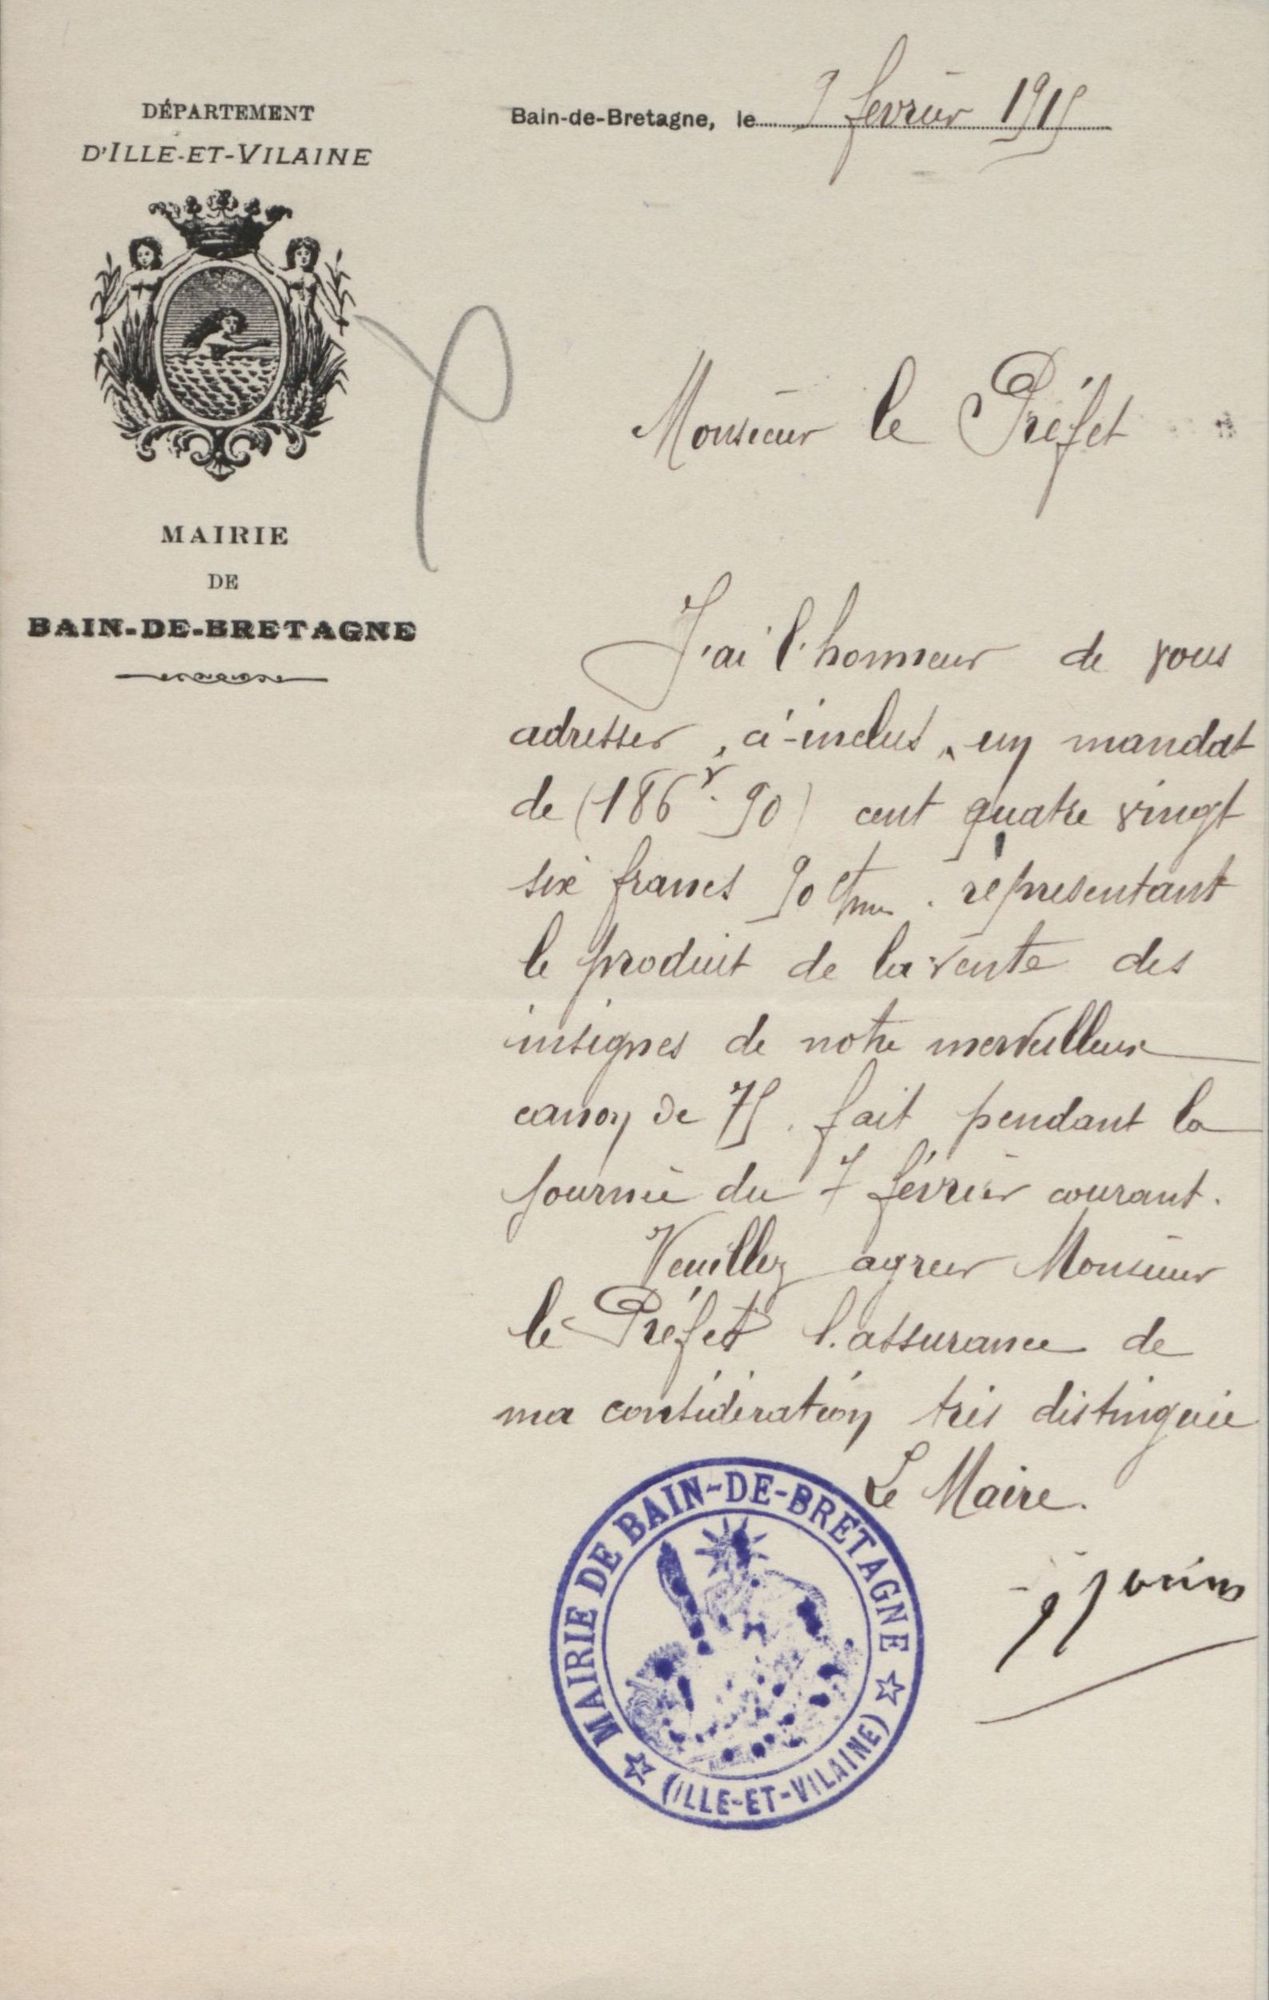 DÉPARTEMENT
D'ILLE-ET-VILAINE
MAIRIE
DE
BAIN-DE-BRETAGNE
Bain-de-Bretagne, le 9 février 1915
Monsieur le Préfet
J'ai l'honneur de vous
adresser, ci-inclus, un mandat
de (186f. 90) cent quatre vingt
six francs 90 ctmes. représentant
le produit de la vente des
insignes de notre merveilleux
canon de 75. fait pendant la
journée du 7 février courant.
Veuillez agréer Monsieur
le Préfet l'assurance de
ma considération très distinguée
Le Maire.
MAIRIE DE BAIN-DE-BRETAGNE
(ILLE-ET-VILAINE)